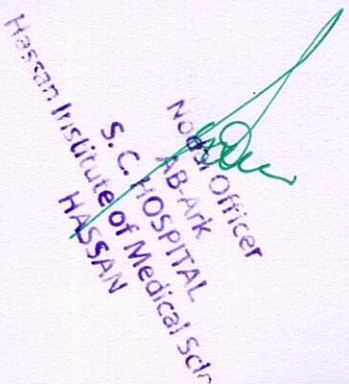 Nodal Officer
AB-Ark
S. C. HOSPITAL
Hassan Institute of Medical Scie
HASSAN